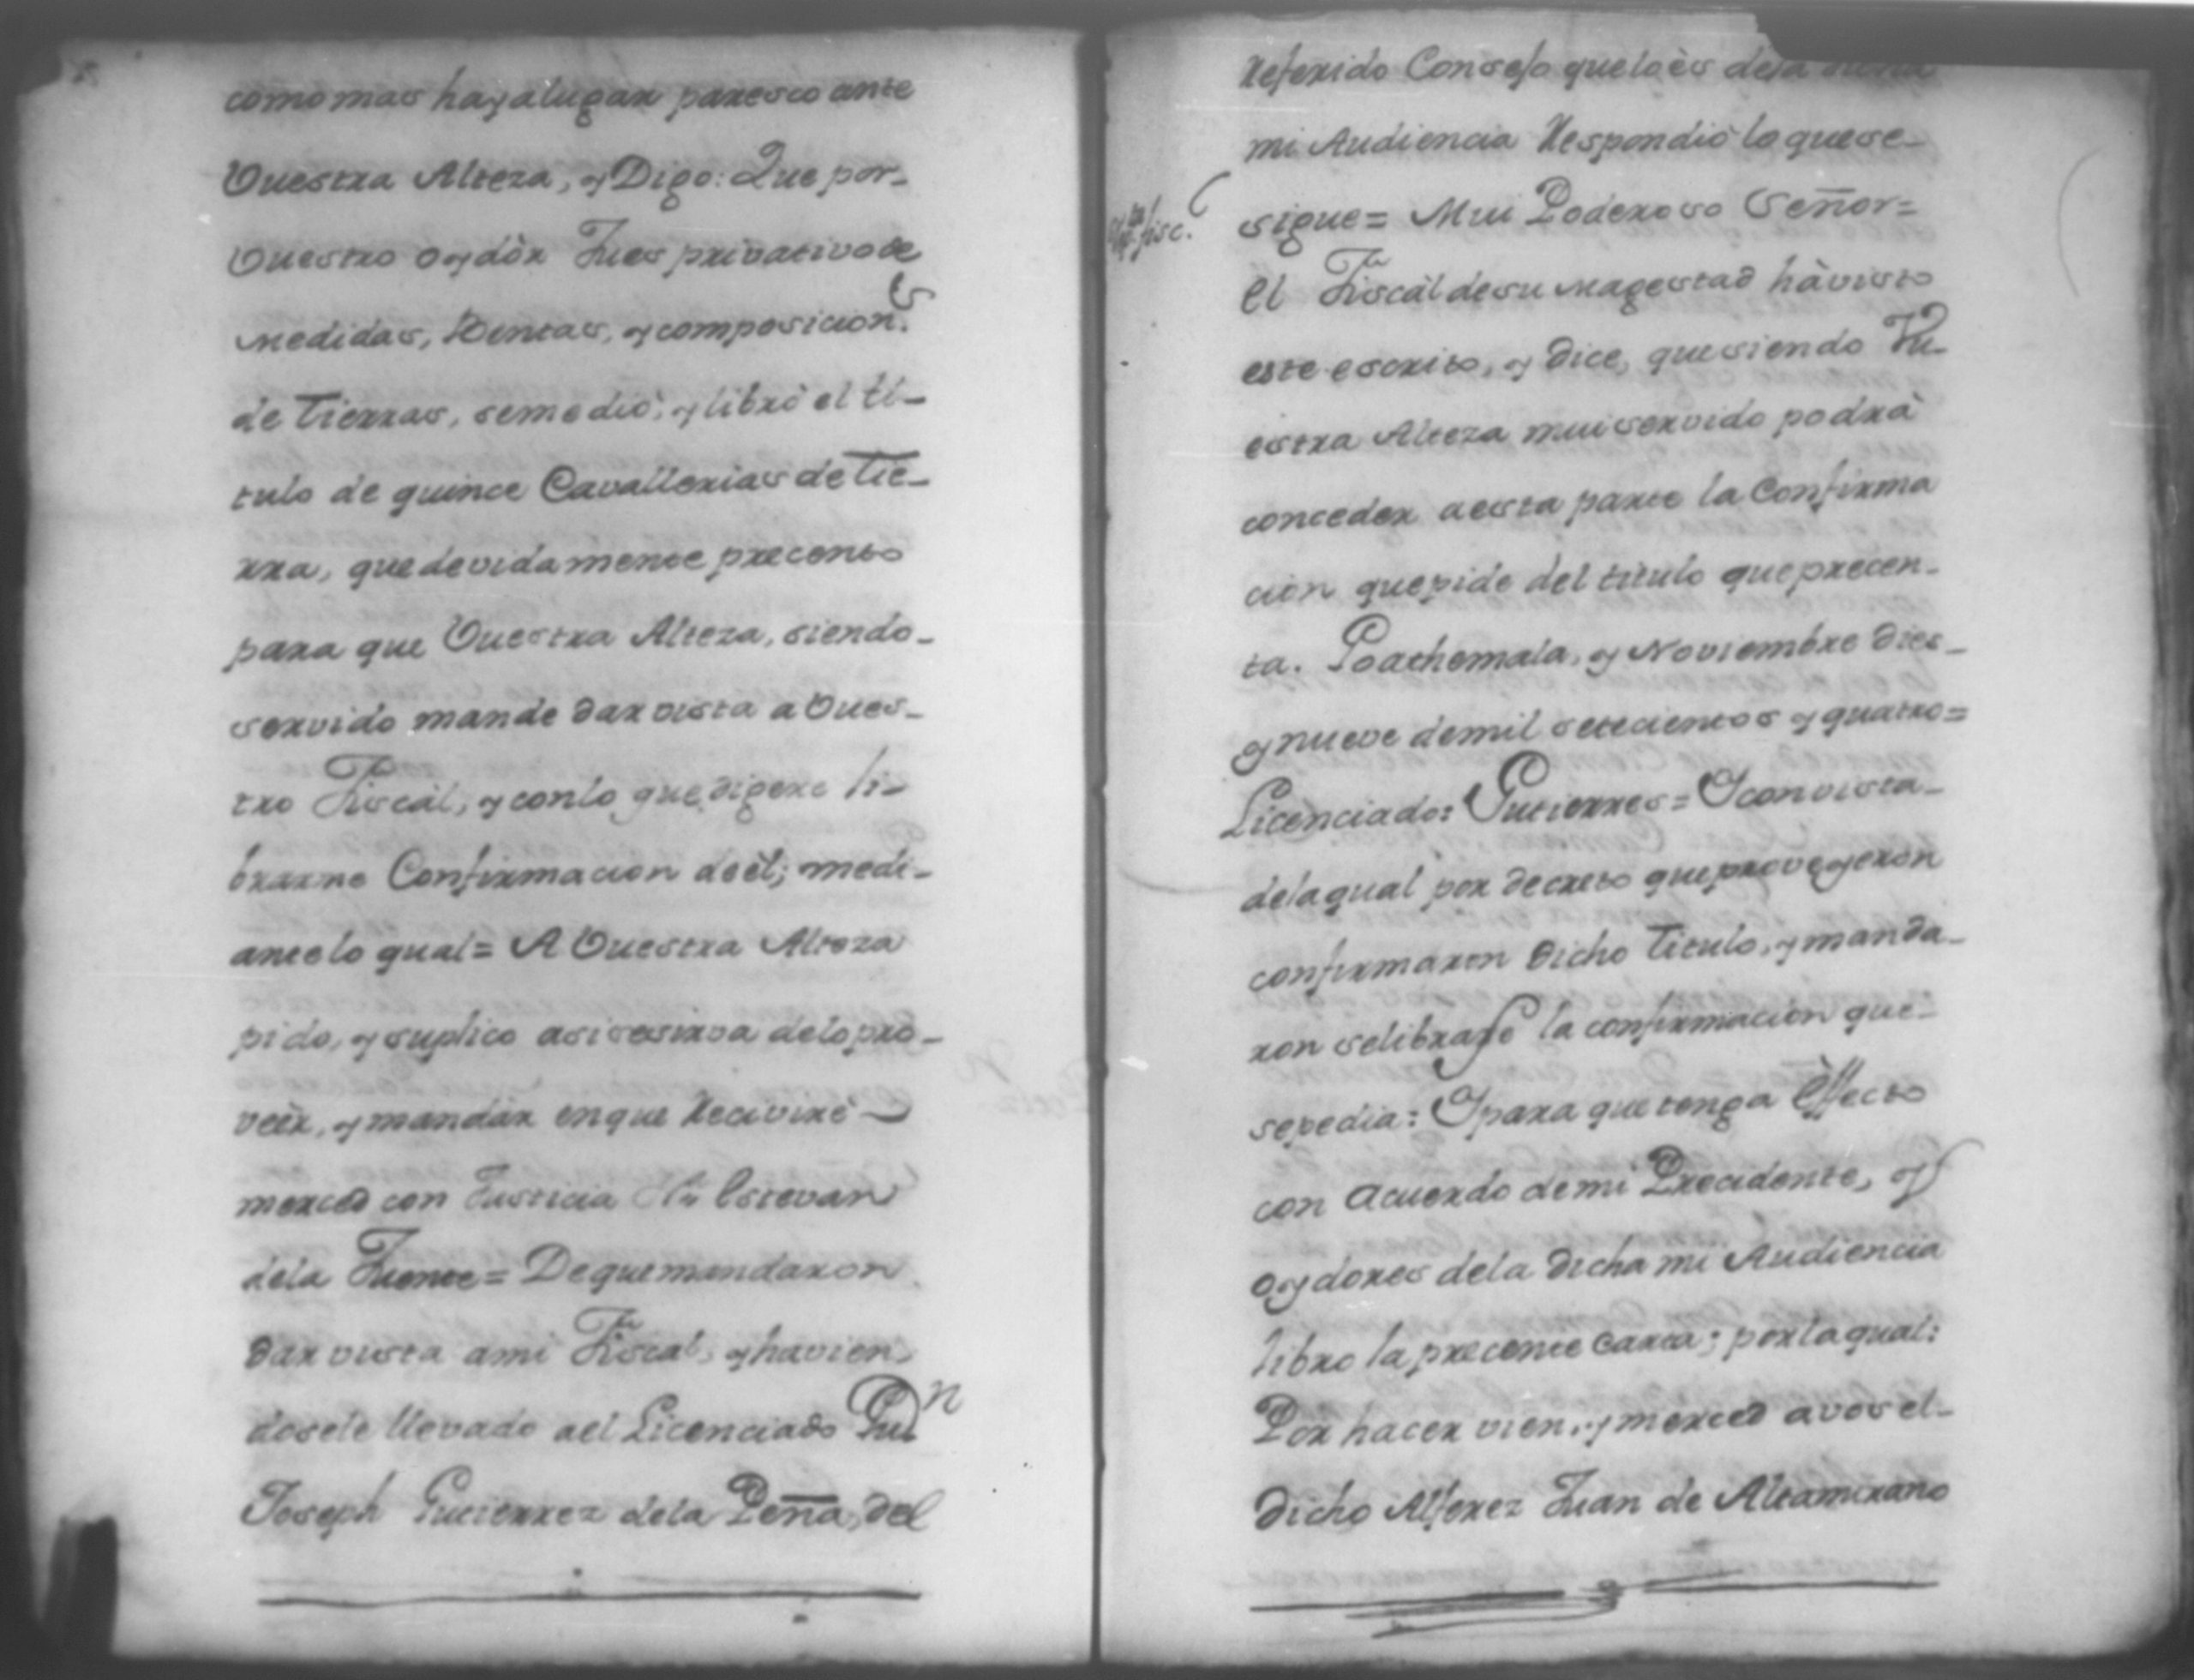 como mas haya lugar paresco ante
Vuestra Alteza, y Digo: Que por-
Vuestro oydòr Jues privativo de
medidas, Ventas, y composicion.s
de tierras, se me diò, y librò el ti-
tulo de quince Cavallerias de tie-
rra, que devidamente precento
para que Vuestra Alteza, siendo-
servido mande dar vista a Vues-
tro Fiscàl, y con lo que digere li-
brarme Confirmacion de èl; medi-
ante lo qual= A Vuestra Alteza
pido, y suplico asi se sirva de lo pro-
veèr, y mandàr en que Recivirè
merced con Justicia Estevan
de la Fuente= De que mandaron
dar vista a mi Fiscal, y havien
dosele llevado a el Licenciado Dn
Joseph Gutierrez de la Peña, del
Referido Consejo que lo ès de la
mi Audiencia Respondiò lo que se-
fisc.
sigue= Mui Poderoso Señor=
El Fiscàl de su Magestad hà visto
este escrito, y dice, que siendo Vu-
estra Alteza mui servido podrà
conceder a esta parte la Confirma
cion que pide del titulo que precen-
ta. Goathemala, y Noviembre dies-
y nueve de mil setecientos y quatro=
Licenciado: Gutierres= Y con vista-
de la qual por decreto que proveyeron
confirmaron dicho titulo, y manda-
ron se librase la confirmacion que-
se pedia: Y para que tenga èffecto
con acuerdo de mi Precidente, y
oydores de la dicha mi Audiencia
libro la precente carta; por la qual:
Por hacer vien, y merced a vos el-
dicho Alferez Juan de Altamirano